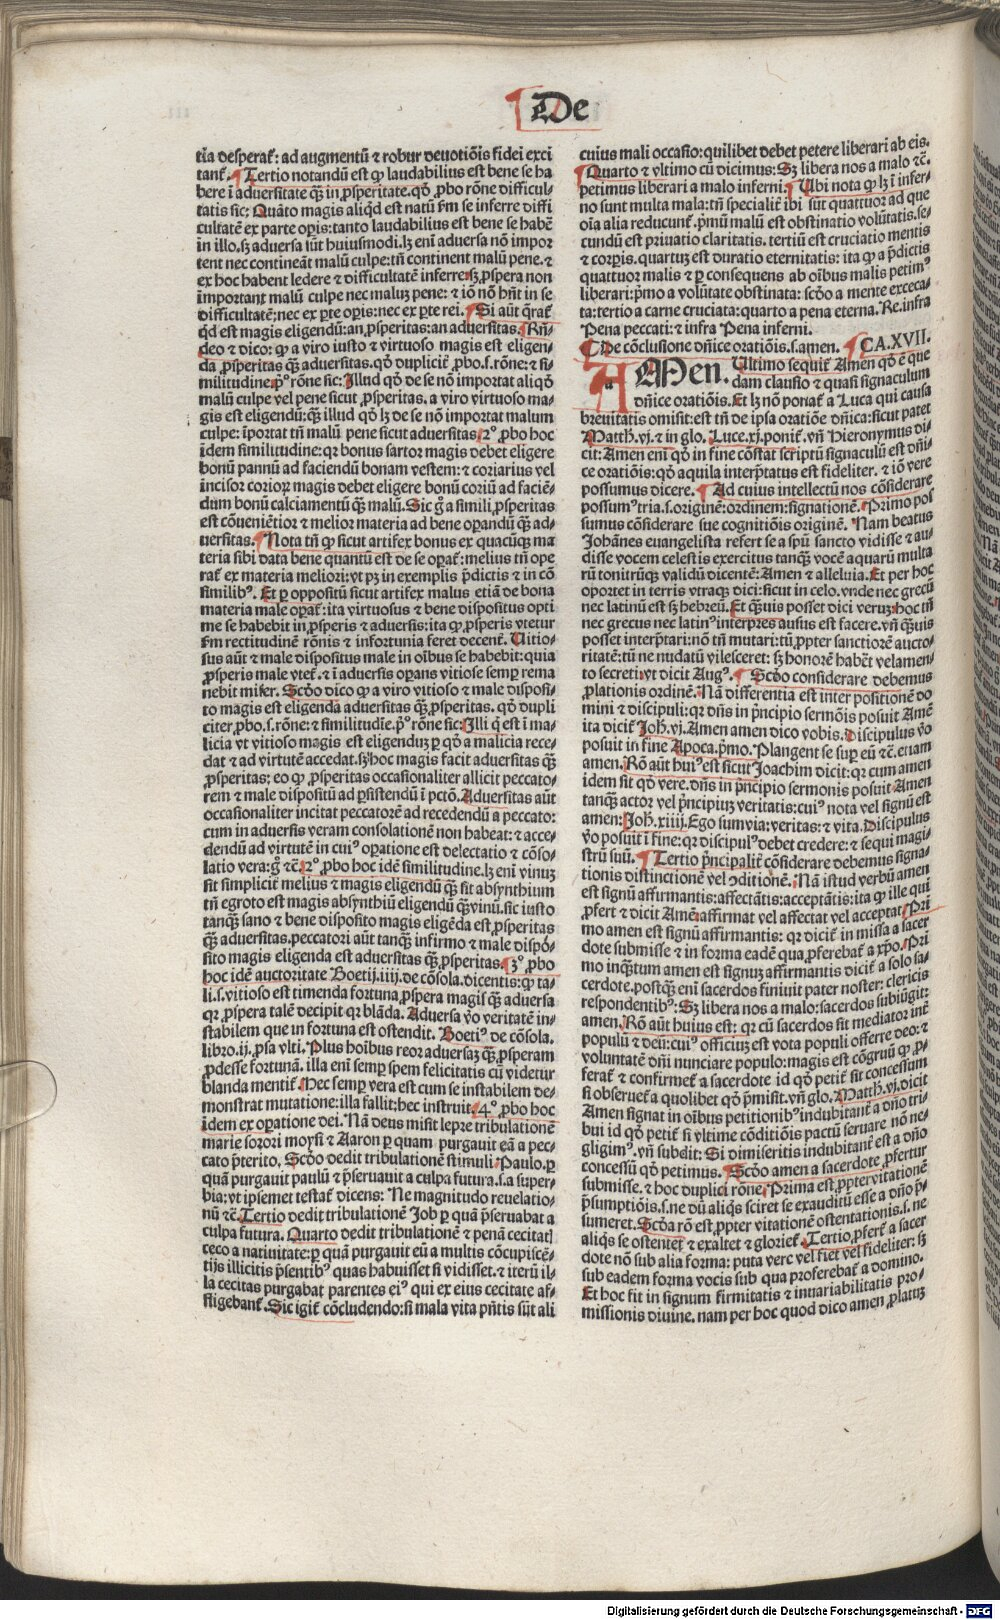 De
tia desperat᷒: ad augmentū ⁊ robur deuotiōis fidei exci
tant᷒. Tertio notandū est ꝙ laudabilius est bene se ha
bere ī aduersitate q̄ꝫ in ꝓsperitate. qd̓ ꝓbo rōne difficul-
tatis sic: Quāto magis aliqd est natū ẜm se inferre diffi
cultatē ex parte oꝑis: tanto laudabilius est bene se habē
in illo. sꝫ aduersa sūt huiusmodi. lꝫ enī aduersa nō impor
tent nec contineāt malū culpe: tn̄ continent malū pene. ⁊
ex hoc habent ledere ⁊ difficultatē inferre: sꝫ ꝓspera non
important malū culpe nec maluꝫ pene: ⁊ iō nō hn̄t in se
difficultatē: nec ex ꝑte oꝑis: nec ex ꝑte rei. Si aūt q̄rat᷒
qd est magis eligendū: an ꝓsperitas: an aduersitas. Rn̄-
deo ⁊ dico: ꝙ a viro iusto ⁊ virtuoso magis est eligen-
da ꝓsperitas q̄ꝫ aduersitas. qd̓ duplicit᷒ ꝓbo. s. rōne: ⁊ si-
militudine. pº rōne sic: Illud qd̓ de se nō importat aliqd̓
malū culpe vel pene sicut ꝓsperitas. a viro virtuoso ma-
gis est eligendū: q̄ꝫ illud qd̓ lꝫ de se nō importat malum
culpe: īportat tn̄ malū pene sicut aduersitas. 2º ꝓbo hoc
idem similitudine: qꝛ bonus sartor magis debet eligere
bonū pannū ad faciendū bonam vestem: ⁊ coriarius vel
incisor coriorꝫ magis debet eligere bonū coriū ad faciē-
dum bonū calciamentū q̄ꝫ malū. Sic gº a simili ꝓsperitas
est cōueniētior ⁊ melior materia ad bene oꝑandū q̄ꝫ ad-
uersitas. Nota tn̄ ꝙ sicut artifex bonus ex quacūqꝫ ma
teria sibi data bene quantū est de se oꝑat᷒: melius tn̄ ope
rat᷒ ex materia meliori: vt pꝫ in exemplis p̄dictis ⁊ in cō
similibꝰ. Et ꝑ oppositū sicut artifex malus etiā de bona
materia male oꝑat᷒: ita virtuosus ⁊ bene dispositus opti
me se habebit in ꝓsperis ⁊ aduersis: ita ꝙ ꝓsperis vtetur
ẜm rectitudinē rōnis ⁊ infortunia feret decent᷒. Uitio-
sus aūt ⁊ male dispositus male in oībus se habebit: quia
ꝓsperis male vtet᷒. ⁊ ī aduersis oꝑans vitiose semꝑ rema
nebit miser. Scd̓o dico ꝙ a viro vitioso ⁊ male disposi-
to magis est eligenda aduersitas q̄ꝫ ꝓsperitas. qd̓ dupli
citer ꝓbo. s. rōne: ⁊ similitudīe. pº rōne sic: Illi q̄ est ī ma-
licia vt vitioso magis est eligenduꝫ ꝑ qd̓ a malicia rece-
dat ⁊ ad virtutē accedat. sꝫ hoc magis facit aduersitas q̄ꝫ
ꝓsperitas: eo ꝙ ꝓsperitas occasionaliter allicit peccato-
rem ⁊ male dispositū ad ꝑsistendū ī pctō. Aduersitas aūt
occasionaliter incitat peccatorē ad recedendū a peccato:
cum in aduersis veram consolationē non habeat: ⁊ acce-
dendū ad virtutē in cuiꝰ oꝑatione est delectatio ⁊ cōso-
latio vera: g̊ ⁊c̄. 2º ꝓbo hoc idē similitudine. lꝫ enī vinuꝫ
sit simplicit᷒ melius ⁊ magis eligendū q̄ꝫ sit absynthium
tn̄ egroto est magis absynthiū eligendū q̄ꝫ vinū. sic iusto
tanq̄ꝫ sano ⁊ bene disposito magis eligēda est ꝓsperitas
q̄ꝫ aduersitas. peccatori aūt tanq̄ꝫ infirmo ⁊ male dispō-
sito magis eligenda est aduersitas q̄ꝫ ꝓsperitas. 3º ꝓbo
hoc idē auctoritate Boetij. iiij. de cōsola. dicentis: ꝙ ta-
li. s. vitioso est timenda fortuna ꝓspera magis q̄ꝫ aduersa
qꝛ ꝓspera talē decipit qꝛ blāda. Aduersa v̊o veritatē in-
stabilem que in fortuna est ostendit. Boetiꝰ de cōsola.
libro. ij. ꝓsa vlti. Plus hoībus reor aduersaꝫ q̄ꝫ ꝓsperam
ꝓdesse fortunā. illa enī semꝑ spem felicitatis cū videtur
blanda mentit᷒. Hec semꝑ vera est cum se instabilem de-
monstrat mutatione: illa fallit: hec instruit. 4º ꝓbo hoc
idem ex oꝑatione dei. Nā deus misit lepre tribulationē
marie sorori moysi ⁊ Aaron ꝑ quam purgauit eā a pec-
cato p̄terito. Scd̓o dedit tribulationē stimuli Paulo. ꝑ
quā purgauit paulū ⁊ p̄seruauit a culpa futura. s. a super-
bia: vt ipsemet testat᷒ dicens: Ne magnitudo reuelatio-
nū ⁊c̄. Tertio dedit tribulationē Job ꝑ quā p̄seruabat a
culpa futura. Quarto dedit tribulationē ⁊ penā cecitat᷒
ceco a natiuitate: ꝑ quā purgauit eū a multis cōcupiscē-
tijs illicitis p̄sentibꝰ quas habuisset si vidisset. ⁊ iterū il-
la cecitas purgabat parentes eiꝰ qui ex eius cecitate af-
fligebant᷒. Sic igit᷒ cōcludendo: si mala vita pn̄tis sūt ali
cuius mali occasio: quilibet debet petere liberari ab eis.
Quarto ⁊ vltimo cū dicimus: Sꝫ libera nos a malo ⁊c̄.
petimus liberari a malo inferni. Ubi nota ꝙ lꝫ ī infer-
no sunt multa mala: tn̄ specialit᷒ ibi sūt quattuor ad que
oīa alia reducunt᷒. p̄mū malū est obstinatio volūtatis. se-
cundū est priuatio claritatis. tertiū est cruciatio mentis
⁊ corꝑis. quartuꝫ est duratio eternitatis: ita ꝙ a p̄dictis
quattuor malis ⁊ ꝑ consequens ab oībus malis petimꝰ
liberari: p̄mo a volūtate obstinata: scd̓o a mente exceca-
ta: tertio a carne cruciata: quarto a pena eterna. Re. infra
Pena peccati: ⁊ infra Pena inferni.
De cōclusione dn̄ice oratiōis. s. amen. CA. XVII.
AMen. Ultimo sequit᷒ Amen qd̓ ē que
dam clausio ⁊ quasi signaculum
dn̄ice oratiōis. Et lꝫ nō ponat᷒ a Luca qui causa
breuitatis omisit: est tn̄ de ipsa oratiōe dn̄ica: sicut patet
Matth. vj. ⁊ in glo. Luce. xj. ponit᷒. vn̄ Hieronymus di-
cit: Amen enī qd̓ in fine cōstat scriptū signaculū est dn̄i-
ce oratiōis: qd̓ aquila interp̄tatus est fideliter. ⁊ iō vere
possumus dicere. Ad cuius intellectū nos cōsiderare
possumꝰ tria. s. originē: ordinem: signationē. Primo pos
sumus cōsiderare sue cognitiōis originē. Nam beatus
Johānes euangelista refert se a spū sancto vidisse ⁊ au-
disse vocem celestis exercitus tanq̄ꝫ vocē aquarū multa
rū tonitrūqꝫ validū dicentē: Amen ⁊ alleluia. Et per hoc
oportet in terris vtraqꝫ dici: sicut in celo. vnde nec grecū
nec latinū est sꝫ hebreū. Et q̄uis posset dici veruꝫ: hoc tn̄
nec grecus nec latinꝰ interpres ausus est facere. vn̄ q̄uis
posset interp̄tari: nō tn̄ mutari: tū ꝓpter sanctiorē aucto-
ritatē: tū ne nudatū vilesceret: sꝫ honorē habēt velamen-
to secreti: vt dicit Augꝰ. Scd̓o considerare debemus
ꝓlationis ordinē. Nā differentia est inter positionē do
mini ⁊ discipuli: qꝛ dn̄s in p̄ncipio sermōis posuit Amē
ita dicit᷒ Joh̄. vj. Amen amen dico vobis. Discipulus v̊o
posuit in fine Apoca. p̄mo. Plangent se suꝑ eū ⁊c̄. etiam
amen. Rō aūt huiꝰ est sicut Joachim dicit: qꝛ cum amen
idem sit qd̓ vere. dn̄s in p̄ncipio sermonis posuit Amen
tanq̄ꝫ actor vel p̄ncipiuꝫ veritatis: cuiꝰ nota vel signū est
amen: Joh̄. xiiij. Ego sum via: veritas: ⁊ vita. Discipulus
v̊o posuit ī fine: qꝛ discipulꝰ debet credere: ⁊ sequi magi-
strū suū. Tertio p̄ncipalit᷒ cōsiderare debemus signa-
tionis distinctionē vel ꝯditionē. Nā istud verbū amen
est signū affirmantis: affectātis: acceptātis: ita ꝙ ille qui
ꝓfert ⁊ dicit Amē: affirmat vel affectat vel acceptat. Pri
mo amen est signū affirmantis: qꝛ dicit᷒ in missa a sacer
dote submisse ⁊ in forma eadē qua ꝓferebat᷒ a xp̄o. Pri
mo inq̄tum amen est signuꝫ affirmantis dicit᷒ a solo sa-
cerdote. postq̄ꝫ enī sacerdos finiuit pater noster: clericis
respondentibꝰ: Sꝫ libera nos a malo: sacerdos subiūgit:
amen. Rō aūt huius est: qꝛ cū sacerdos sit mediator int᷒
populū ⁊ deū: cuiꝰ officiuꝫ est vota populi offerre deo: ⁊
voluntatē dn̄i nunciare populo: magis est cōgruū ꝙ ꝓ-
ferat᷒ ⁊ confirmet᷒ a sacerdote id qd̓ petit᷒ sit concessum
si obseruet᷒ a quolibet qd̓ p̄misit. vn̄ glo. Matth. vj. dicit
Amen signat in oībus petitionibꝰ indubitant᷒ a dn̄o tri-
bui id qd̓ petit᷒ si vltime cōditiōis pactū seruare nō ne-
gligimꝰ. vn̄ subdit: Si dimiseritis indubitant᷒ est a dn̄o
concessū qd̓ petimus. Scd̓o amen a sacerdote ꝓfertur
submisse. ⁊ hoc duplici rōne. Prima est ꝓpter vitationē
p̄sumptiōis. s. ne dū aliqꝫ sciret se exauditū esse a dn̄o p̄-
sumeret. Scd̓a rō est ꝓpter vitationē ostentationis. s. ne
aliqꝫ se ostentet ⁊ exaltet ⁊ gloriet᷒. Tertio ꝓfert᷒ a sacer
dote nō sub alia forma: puta vere vel fiet vel fideliter: sꝫ
sub eadem forma vocis sub qua proferebat᷒ a domino.
Et hoc fit in signum firmitatis ⁊ inuariabilitatis pro-
missionis diuine. nam per hoc quod dico amen ꝓlatuꝫ
Digitalisierung gefördert durch die Deutsche Forschungsgemeinschaft - DFG